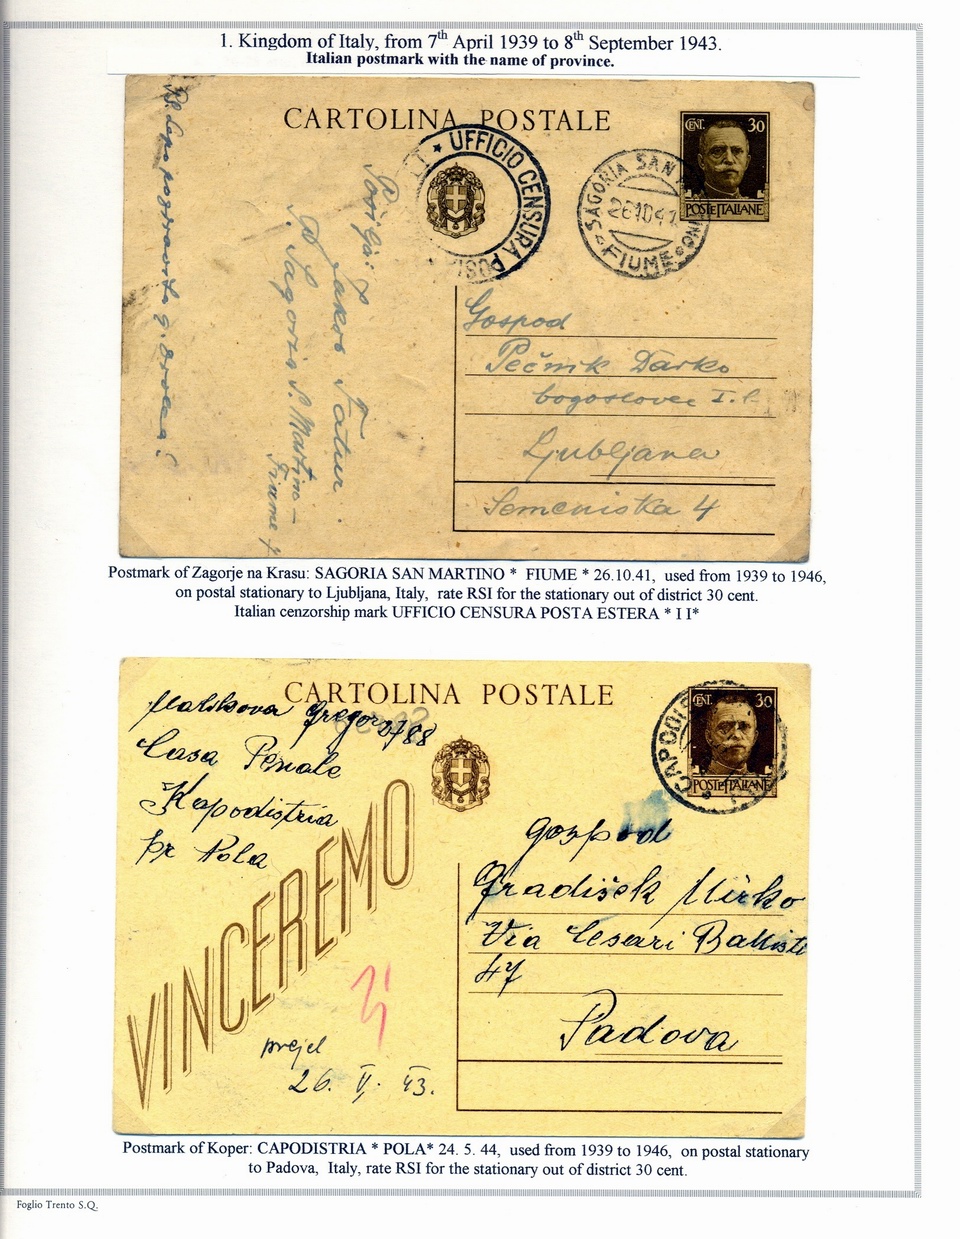 1. Kingdom of Italy, from 7th April 1939 to 8th September 1943.
Italian postmark with the name of province.
CARTOLINA POSTALE
CENT. 30
POSTE ITALIANE
★ UFFICIO CENSURA POST
SAGORIA SAN
26.10.41.
FIUME
Jakob Fatur
S. Martino –
Fiume
Gospod
Pečnik Darko
bogoslovec I. l.
Ljubljana
Semeniska 4
Postmark of Zagorje na Krasu: SAGORIA SAN MARTINO * FIUME * 26.10.41, used from 1939 to 1946,
on postal stationary to Ljubljana, Italy, rate RSI for the stationary out of district 30 cent.
Italian cenzorship mark UFFICIO CENSURA POSTA ESTERA * I I*
CARTOLINA POSTALE
CENT. 30
POSTE ITALIANE
CAPODI
Gregor 2788
Casa Penale
Kapodistria
pr Pola
VINCEREMO
prejel
26. V. 43.
Gospod
Gradišek Mirko
Via Cesari Battisti
47
Padova
Postmark of Koper: CAPODISTRIA * POLA* 24. 5. 44, used from 1939 to 1946, on postal stationary
to Padova, Italy, rate RSI for the stationary out of district 30 cent.
Foglio Trento S.Q.